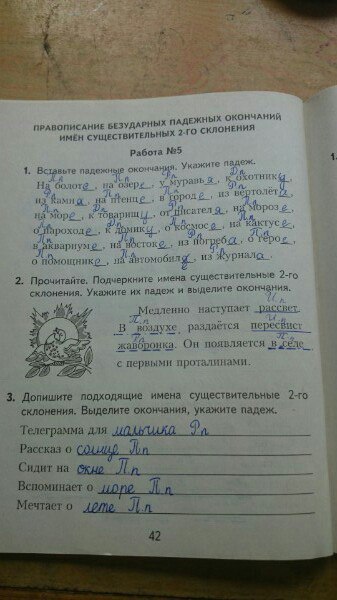 ПРАВОПИСАНИЕ БЕЗУДАРНЫХ ПАДЕЖНЫХ ОКОНЧАНИЙ
ИМЁН СУЩЕСТВИТЕЛЬНЫХ 2-ГО СКЛОНЕНИЯ
Работа №5
1. Вставьте падежные окончания. Укажите падеж.
На болоте, на озере, у муравья, к охотнику,
из камня, на птенце, в городе, из вертолёта,
на море, к товарищу, от писателя, на морозе,
о пароходе, к домику, о космосе, на кактусе,
в аквариуме, на востоке, из погреба, о герое,
о помощнике, на автомобиле, из журнала.
2. Прочитайте. Подчеркните имена существительные 2-го
склонения. Укажите их падеж и выделите окончания.
И п
Медленно наступает рассвет.
П п И п
В воздухе раздаётся пересвист
жаворонка. Он появляется в селе
с первыми проталинами.
3. Допишите подходящие имена существительные 2-го
склонения. Выделите окончания, укажите падеж.
Телеграмма для мальчика Р п
Рассказ о солнце П п
Сидит на окне П п
Вспоминает о море П п
Мечтает о лете П п
42